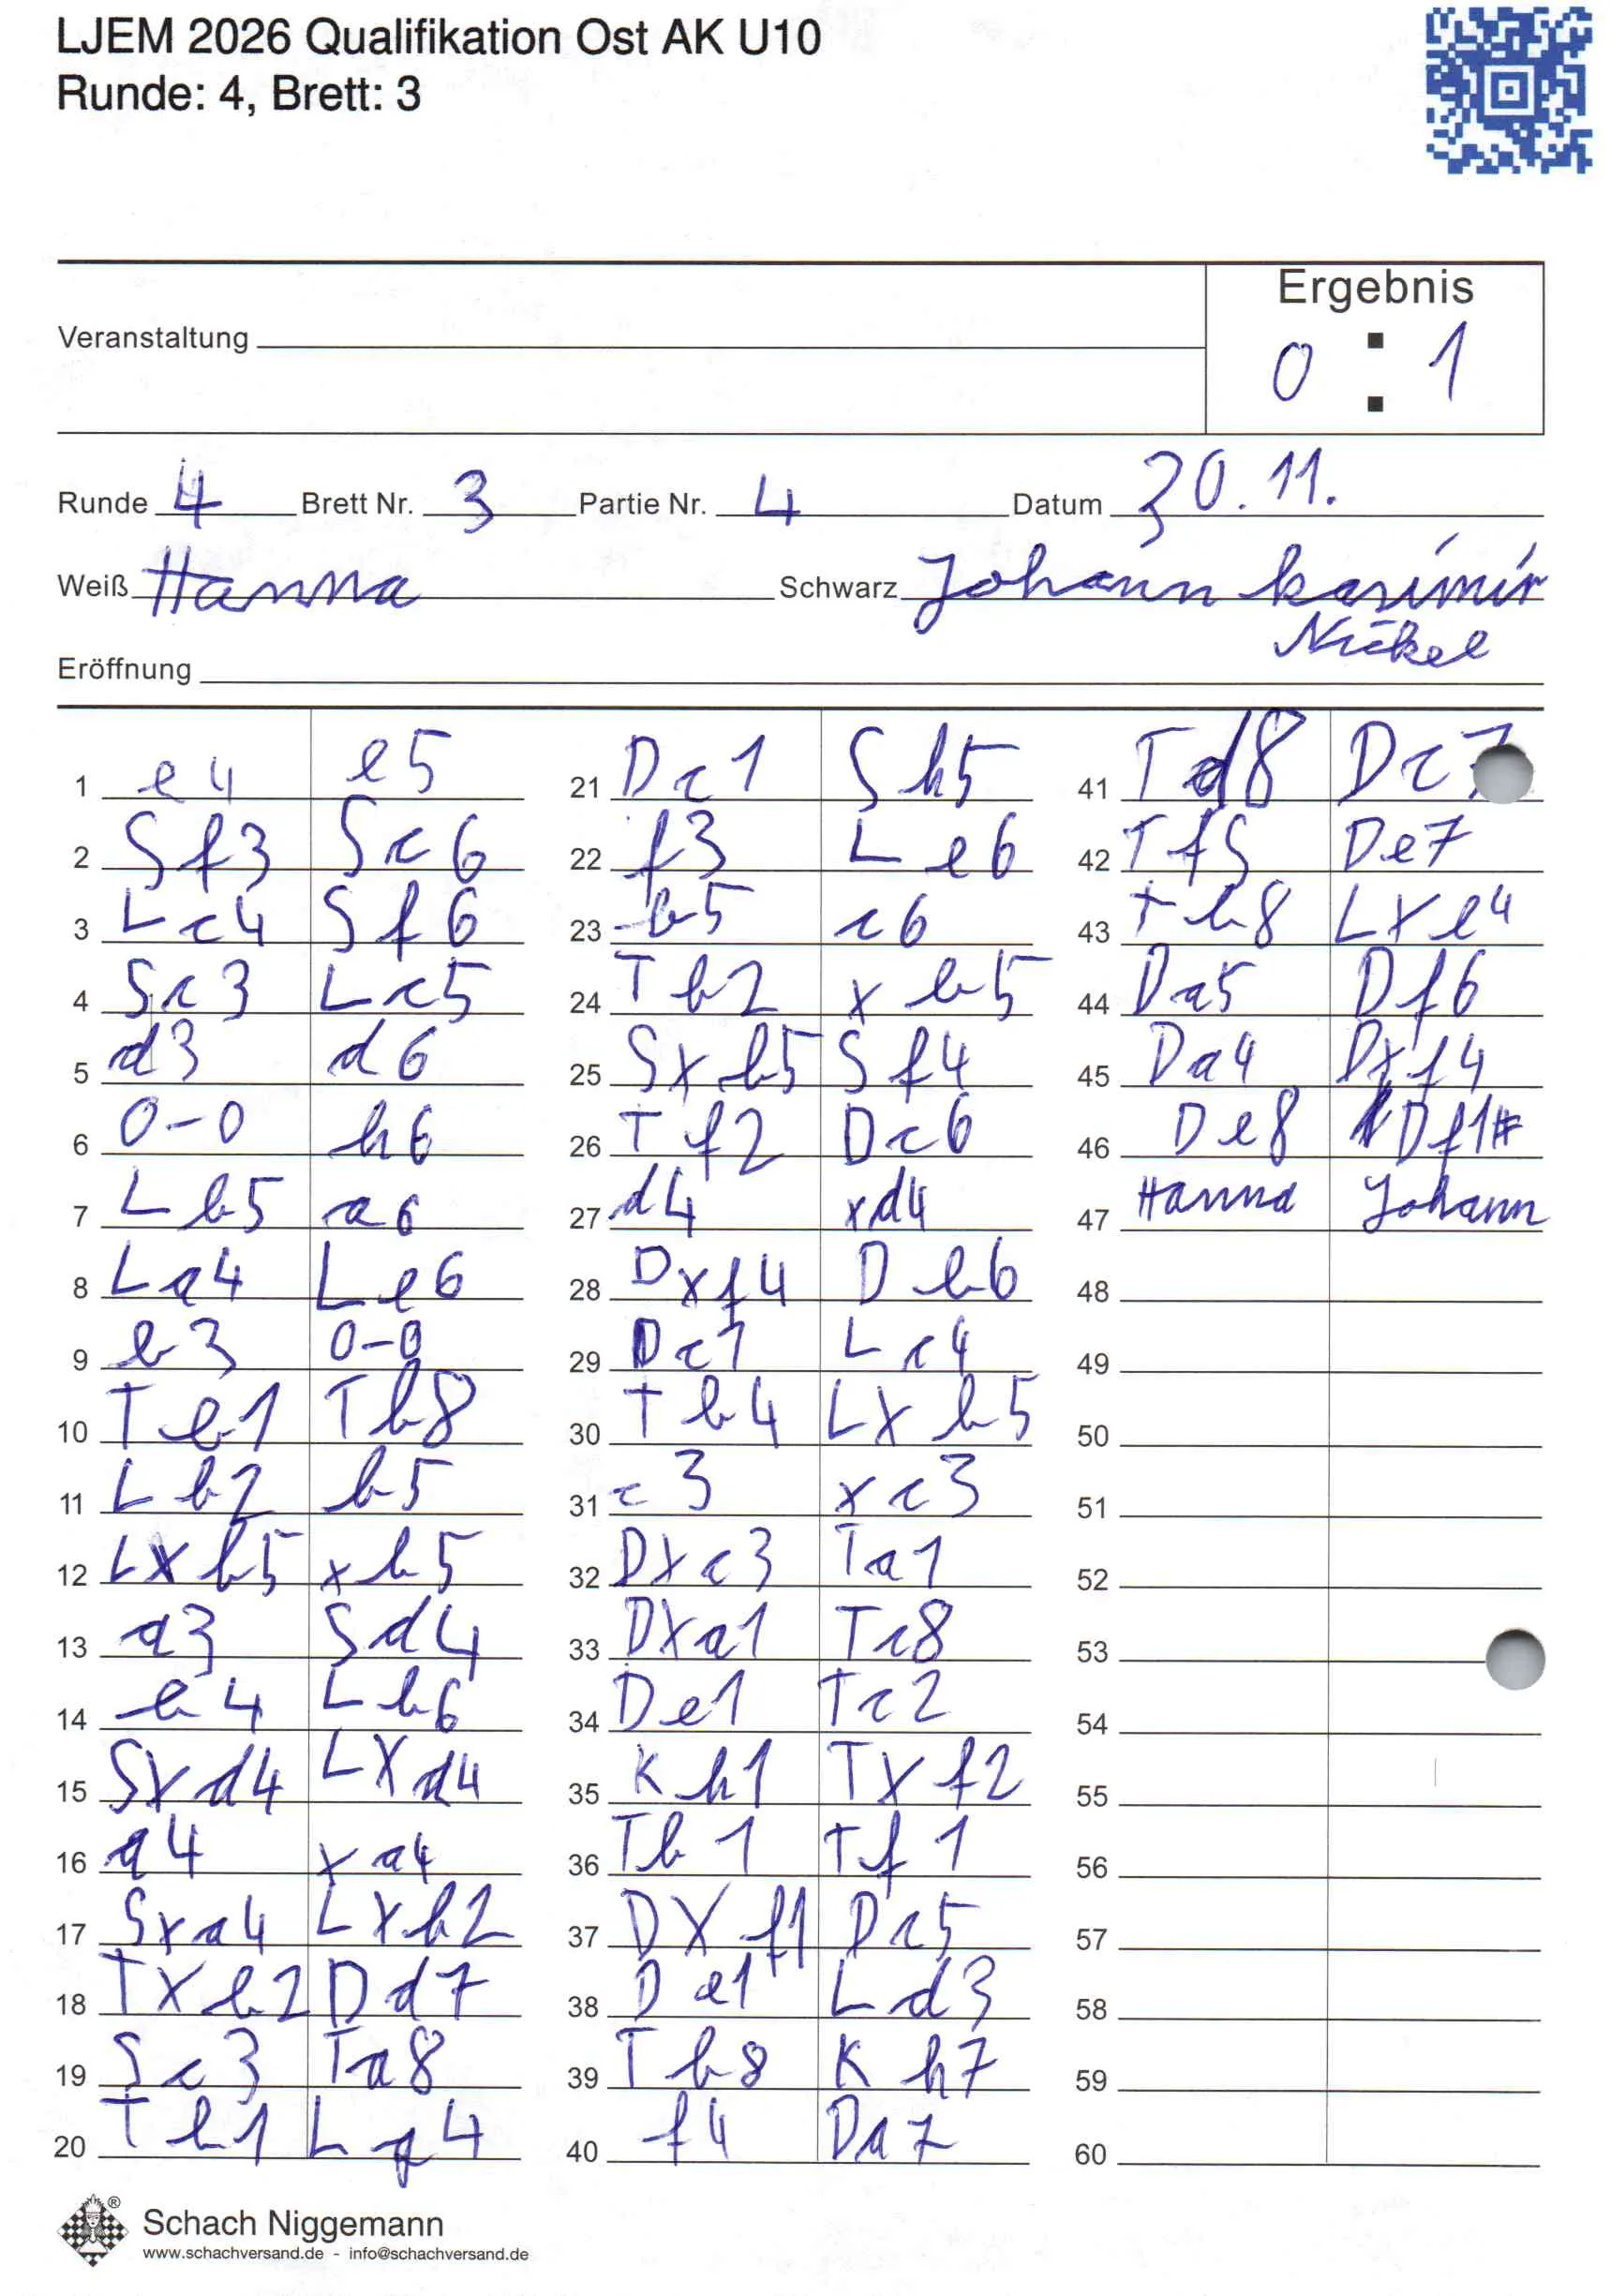 LJEM 2026 Qualifikation Ost AK U10
Runde: 4, Brett: 3
Ergebnis
Veranstaltung
0 : 1
Runde 4 Brett Nr. 3 Partie Nr. 4 Datum 30.11.
Weiß Hanna Schwarz Johann kasimir
Nickel
Eröffnung
1 e4 e5
2 Sf3 Sc6
3 Lc4 Sf6
4 Sc3 Lc5
5 d3 d6
6 0-0 h6
7 Lb5 a6
8 La4 Le6
9 b3 0-0
10 Te1 Tb8
11 Lb2 b5
12 Lxb5 xb5
13 a3 Sd4
14 b4 Lb6
15 Sxd4 Lxd4
16 a4 xa4
17 Sxa4 Lxb2
18 Txb2 Dd7
19 Sc3 Ta8
20 Tb1 Lg4
21 Dc1 Sh5
22 f3 Le6
23 b5 c6
24 Tb2 xb5
25 Sxb5 Sf4
26 Tf2 Dc6
27 d4 xd4
28 Dxf4 Db6
29 Dc1 Lc4
30 Tb4 Lxb5
31 c3 xc3
32 Dxc3 Ta1
33 Dxa1 Tc8
34 De1 Tc2
35 Kh1 Txf2
36 Tb1 Tf1
37 DXf1 Dc5
38 De1 Ld3
39 Tb8 Kh7
40 f4 Da7
41 Td8 Dc7
42 Tf5 De7
43 Tb8 Lxe4
44 Da5 Df6
45 Da4 Dxf4
46 De8 Df1#
47 Hanna Johann
48
49
50
51
52
53
54
55
56
57
58
59
60
Schach Niggemann
www.schachversand.de - info@schachversand.de